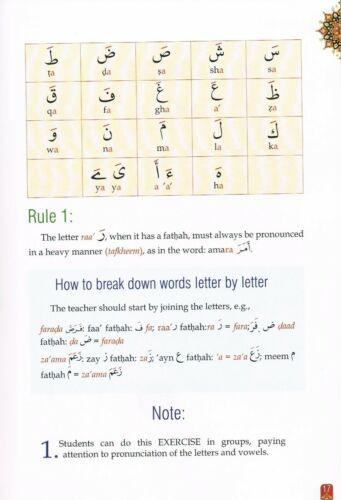 سَ شَ صَ ضَ طَ
sa sha ṣa ḍa ṭa
ظَ عَ غَ فَ قَ
ẓa a' gha fa qa
كَ لَ مَ نَ وَ
ka la ma na wa
هَ ءَ أَ يَ ےَ
ha a 'a' ya ya
Rule 1:
The letter raa' رَ, when it has a fatḥah, must always be pronounced
in a heavy manner (tafkheem), as in the word: amara أَمَرَ.
How to break down words letter by letter
The teacher should start by joining the letters, e.g.,
faraḍa فَرَضَ: faa' fatḥah: فَ fa; raa' ر fatḥah:ra رَ = fara; فَرَ, ض ḍaad
fatḥah: ḍa ضَ = faraḍa
za'ama زَعَمَ: zay ز fatḥah: za زَ; 'ayn ع fatḥah: 'a = za'a زَعَ; meem م
fatḥah مَ = za'ama زَعَمَ
Note:
1. Students can do this EXERCISE in groups, paying
attention to pronunciation of the letters and vowels.
17